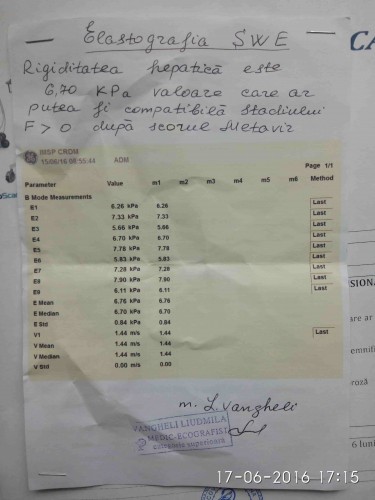 Elastografia SWE
Rigiditatea hepatică este
6,70 KPa valoare care ar
putea fi compatibilă stadiului
F > 0 după scorul Metavir
GE INSP CRDM
15/06/16 08:55:44 ADM
Page 1/1
Parameter Value m1 m2 m3 m4 m5 m6 Method
B Mode Measurements
E1 6.26 kPa 6.26 Last
E2 7.33 kPa 7.33 Last
E3 5.66 kPa 5.66 Last
E4 6.70 kPa 6.70 Last
E5 7.78 kPa 7.78 Last
E6 5.83 kPa 5.83 Last
E7 7.28 kPa 7.28 Last
E8 7.90 kPa 7.90 Last
E9 6.11 kPa 6.11 Last
E Mean 6.76 kPa 6.76
E Median 6.70 kPa 6.70
E Std 0.84 kPa 0.84
V1 1.44 m/s 1.44 Last
V Mean 1.44 m/s 1.44
V Median 1.44 m/s 1.44
V Std 0.00 m/s 0.00
m. L. Vangheli
VANGHELI LIUDMILA
MEDIC-ECOGRAFIST
categorie superioara
17-06-2016 17:15